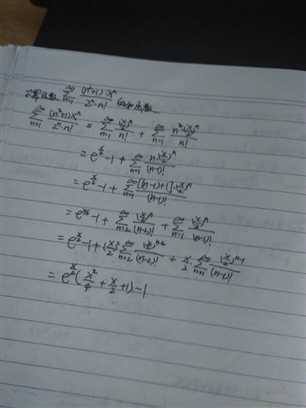 求级数 ∑_{n=1}^{∞} (n²+1)xⁿ / (2ⁿ·n!) 的和函数.
∑_{n=1}^{∞} (n²+1)xⁿ / (2ⁿ·n!) = ∑_{n=1}^{∞} (x/2)ⁿ / n! + ∑_{n=1}^{∞} n²(x/2)ⁿ / n!
= e^{x/2} - 1 + ∑_{n=1}^{∞} n(x/2)ⁿ / (n-1)!
= e^{x/2} - 1 + ∑_{n=1}^{∞} [(n-1)+1](x/2)ⁿ / (n-1)!
= e^{x/2} - 1 + ∑_{n=2}^{∞} (x/2)ⁿ / (n-2)! + ∑_{n=1}^{∞} (x/2)ⁿ / (n-1)!
= e^{x/2} - 1 + (x/2)² ∑_{n=2}^{∞} (x/2)^{n-2} / (n-2)! + x/2 ∑_{n=1}^{∞} (x/2)^{n-1} / (n-1)!
= e^{x/2}(x²/4 + x/2 + 1) - 1